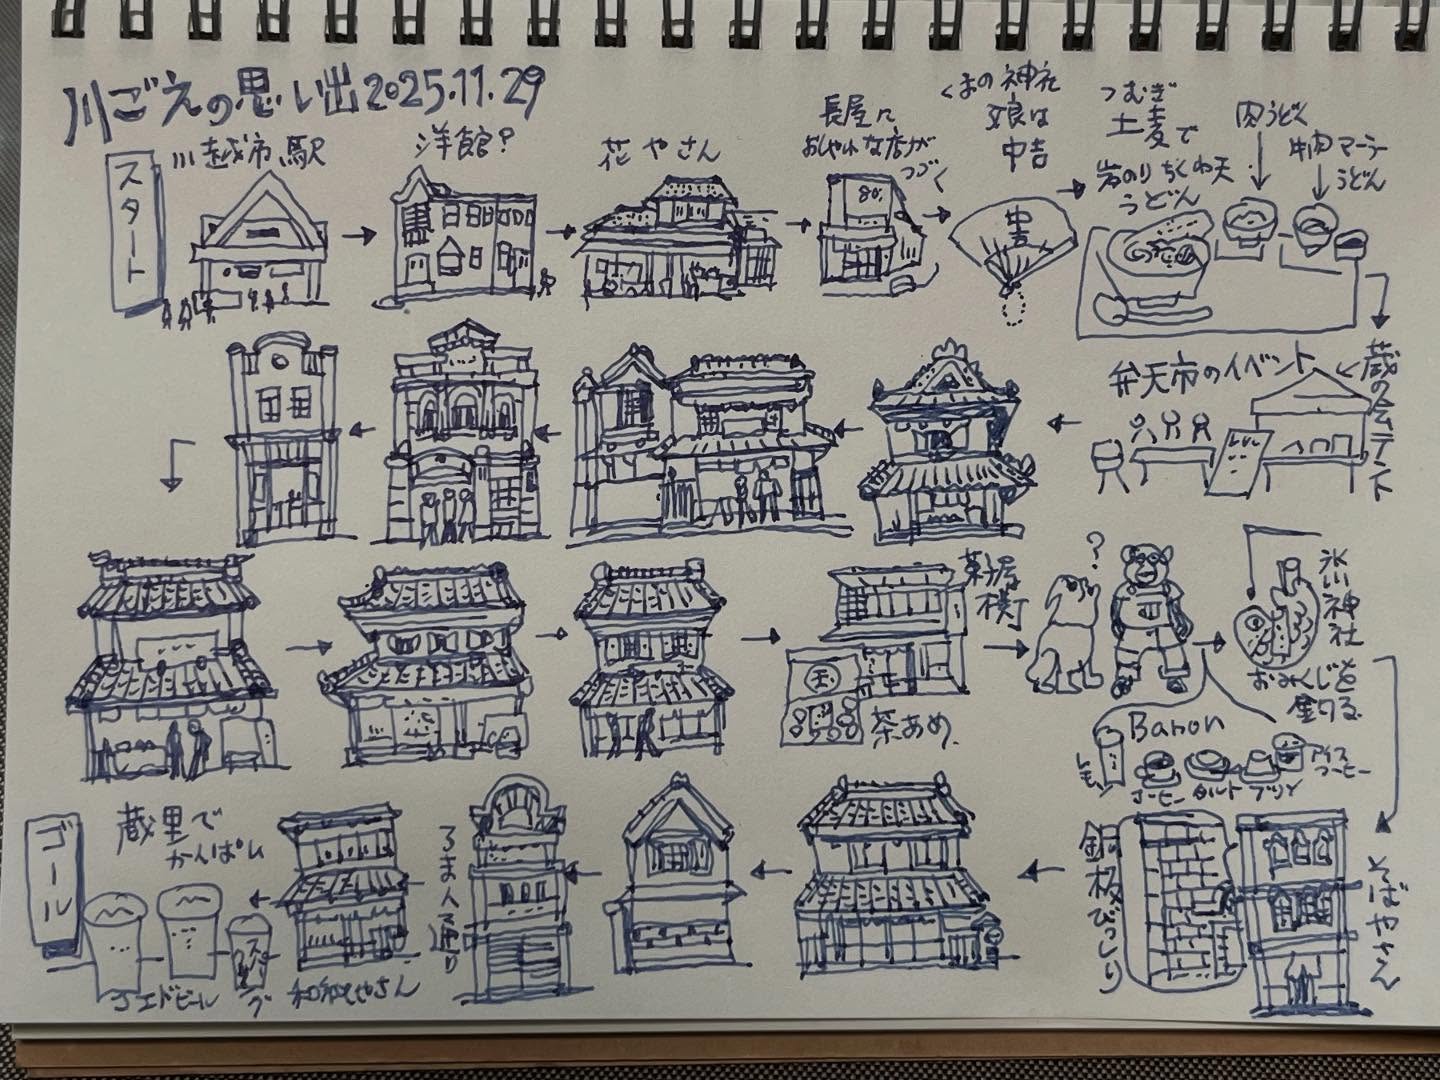 川ごえの思い出2025.11.29
スタート
川越市駅
洋館?
花やさん
長屋に
おしゃれな店が
つづく
80%
くまの神社
娘は
中吉
中吉
つむぎ
土麦で
岩のりちくわ天
うどん
肉うどん
牛肉マーラー
うどん
蔵の会テント
弁天市のイベント
菓子屋
横丁
茶あめ
?
氷川神社
おみくじを
釣る
Baron
レモン
コーヒー
タルト
プリン
アイス
コーヒー
そばやさん
銅板びっしり
ろまん通り
和紙やさん
蔵里で
かんぱい
コエドビール
ゴール